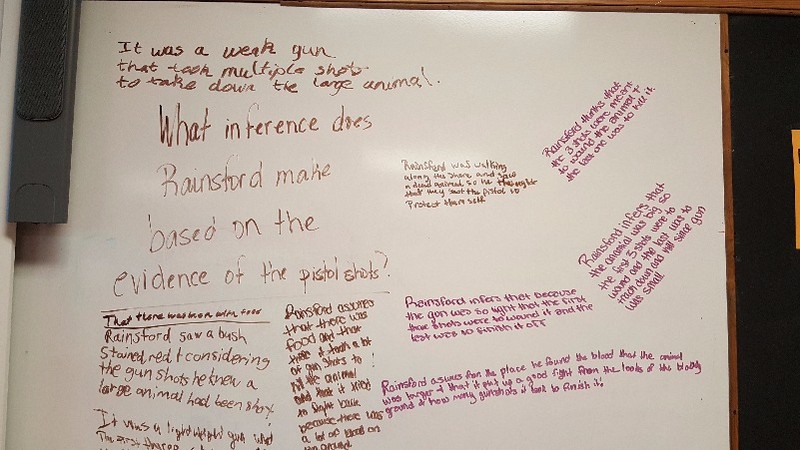 It was a weak gun
that took multiple shots
to take down the large animal.
What inference does
Rainsford make
based on the
evidence of the pistol shots?
Rainsford was walking
along the shore and saw
a dead animal so he thought
that they shot the pistol to
Protect them self
Rainsford thinks that
the 3 shots were meant
to wound the animal &
the last one was to kill it
Rainsford infers that
the animal was big so
the first 3 shots were to
wound and the last was to
down and kill since gun
was small
Rainsford infers that because
the gun was so light that the first
three shots were to wound it and the
last was to finish it off
Rainsford asumes from the place he found the blood that the animal
was larger & that it put up a good fight from the looks of the bloody
ground & how many gunshots it took to finish it!
That there was man with food
Rainsford saw a bush
stained red & considering
the gun shots he knew a
large animal had been shot
It was a light weight gun and
The first three
Rainsford assumed
that there was
food and that
it took a lot
of gun shots to
kill the animal
and that it tried
to fight back
because there was
a lot of blood on
the ground